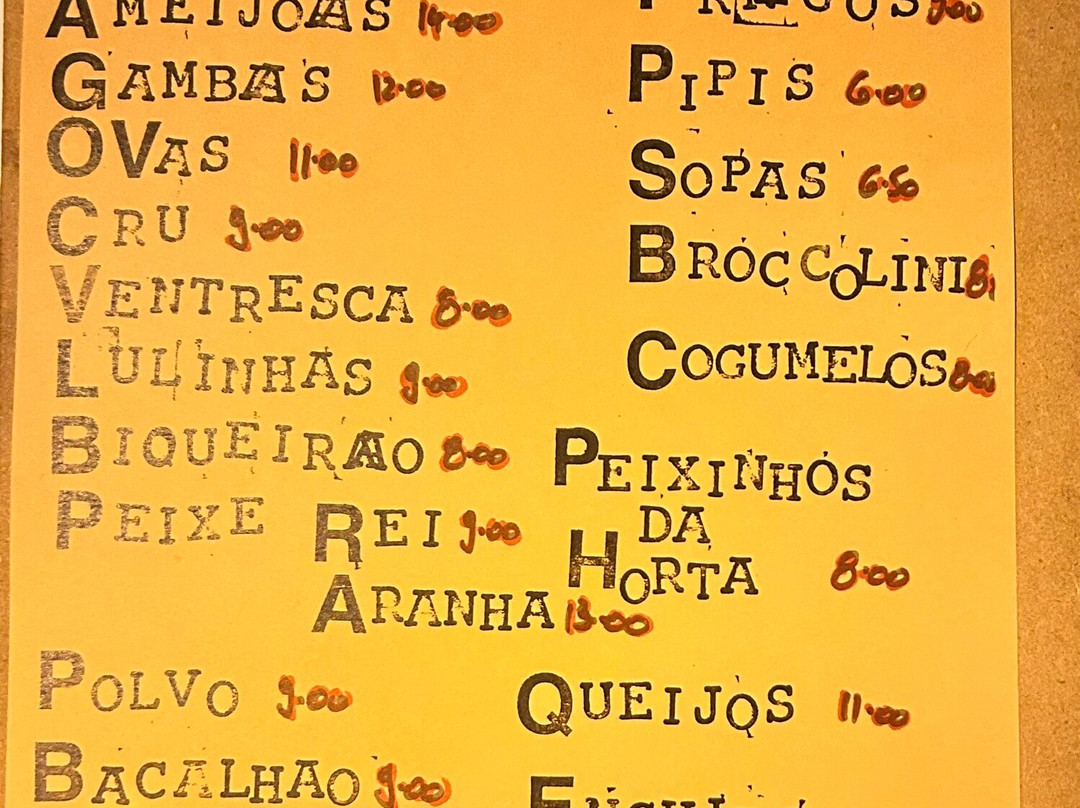 AMEIJOAS 14.00
GAMBAS 12.00
OVAS 11.00
CRU 9.00
VENTRESCA 8.00
LULINHAS 9.00
BIQUEIRÃO 8.00
PEIXE REI 9.00
ARANHA 13.00
POLVO 9.00
BACALHAO 9.00
9.00
PIPIS 6.00
SOPAS 6.50
BROCCOLINI 8.
COGUMELOS 8.00
PEIXINHOS
DA
HORTA 8.00
QUEIJOS 11.00